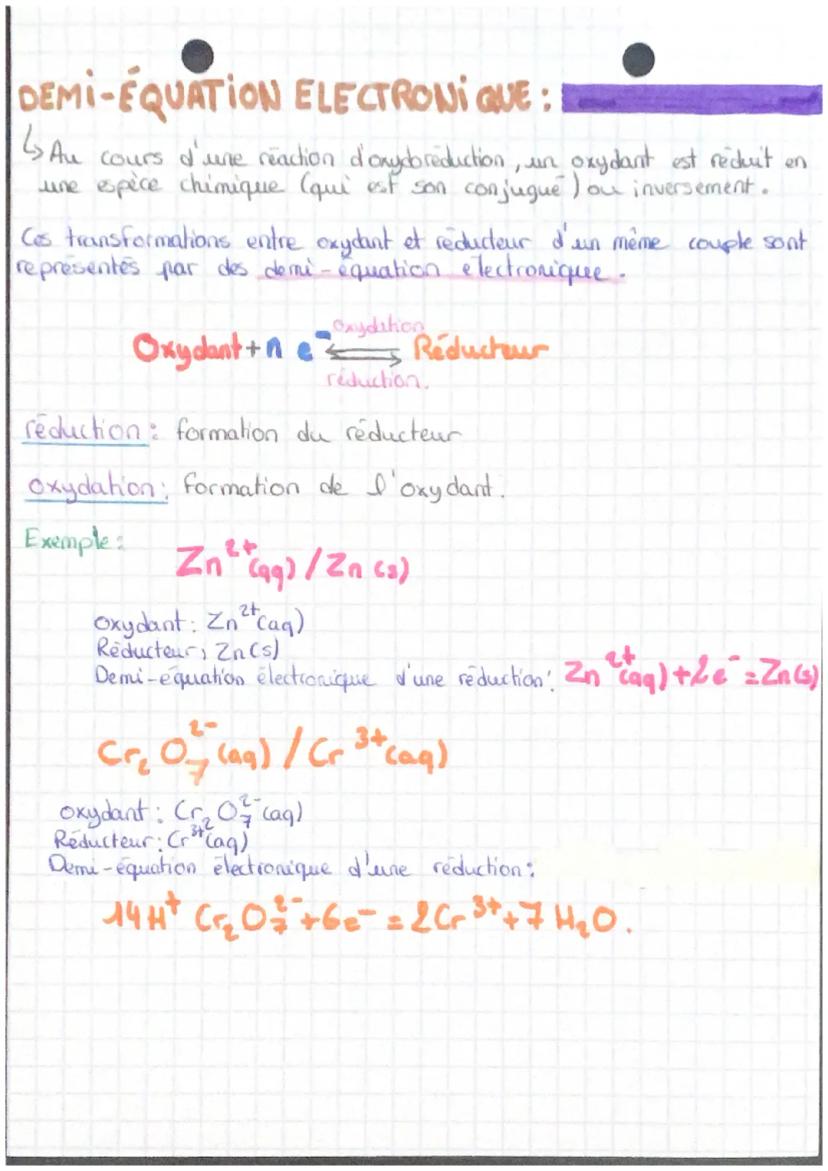 DEMI-ÉQUATION ELECTRONIQUE :
↳ Au cours d'une réaction d'oxydoréduction, un oxydant est réduit en
une espèce chimique (qui est son conjugué) ou inversement.
Ces transformations entre oxydant et réducteur d'un même couple sont
représentés par des demi-équation électronique.
oxydation
Oxydant + n e⁻ ⇌ Réducteur
réduction.
réduction : formation du réducteur
oxydation : formation de l'oxydant.
Exemple :
Zn²⁺(aq) / Zn (s)
oxydant : Zn²⁺(aq)
Réducteur : Zn(s)
Demi-équation électronique d'une réduction : Zn²⁺(aq) + 2e⁻ = Zn(s)
Cr₂O₇²⁻(aq) / Cr³⁺(aq)
oxydant : Cr₂O₇²⁻(aq)
Réducteur : Cr³⁺(aq)
Demi-équation électronique d'une réduction :
14H⁺ Cr₂O₇²⁻ + 6e⁻ = 2Cr³⁺ + 7 H₂O.